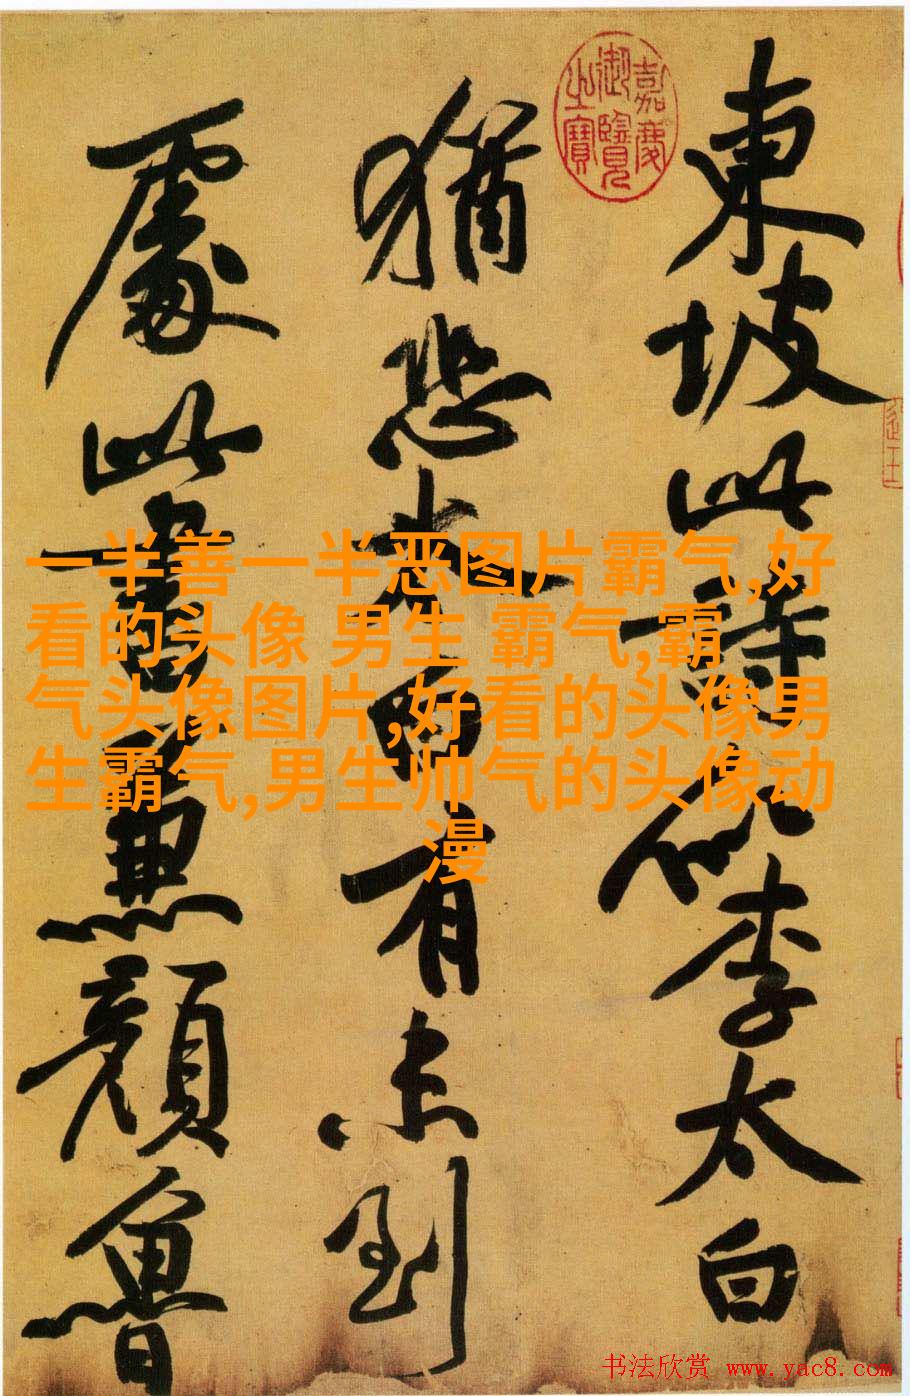 東坡此詩似李太白
猶恐太白有未到
處此書兼顏魯
嘉慶
御覽
之寶
一半善一半恶图片霸气,好
看的头像 男生 霸气,霸
气头像图片,好看的头像男
生霸气,男生帅气的头像动
漫
书法欣赏 www.yac8.com